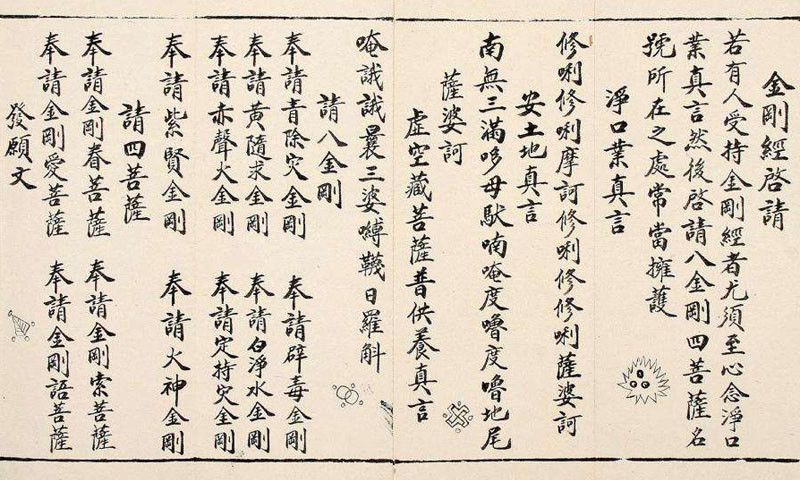 金剛經啓請
若有人受持金剛經者尤須至心念淨口
業真言然後啓請八金剛四菩薩名
號所在之處常當擁護
淨口業真言
修唎修唎摩訶修唎修修唎薩婆訶
安土地真言
南無三滿哆母馱喃唵度嚕度嚕地尾
薩婆訶
虛空藏菩薩普供養真言
唵誐誐曩三婆嚩韈日羅斛
請八金剛
奉請青除灾金剛 奉請辟毒金剛
奉請黃隨求金剛 奉請白淨水金剛
奉請赤聲火金剛 奉請定持灾金剛
奉請紫賢金剛 奉請火神金剛
請四菩薩
奉請金剛眷菩薩 奉請金剛索菩薩
奉請金剛愛菩薩 奉請金剛語菩薩
發願文